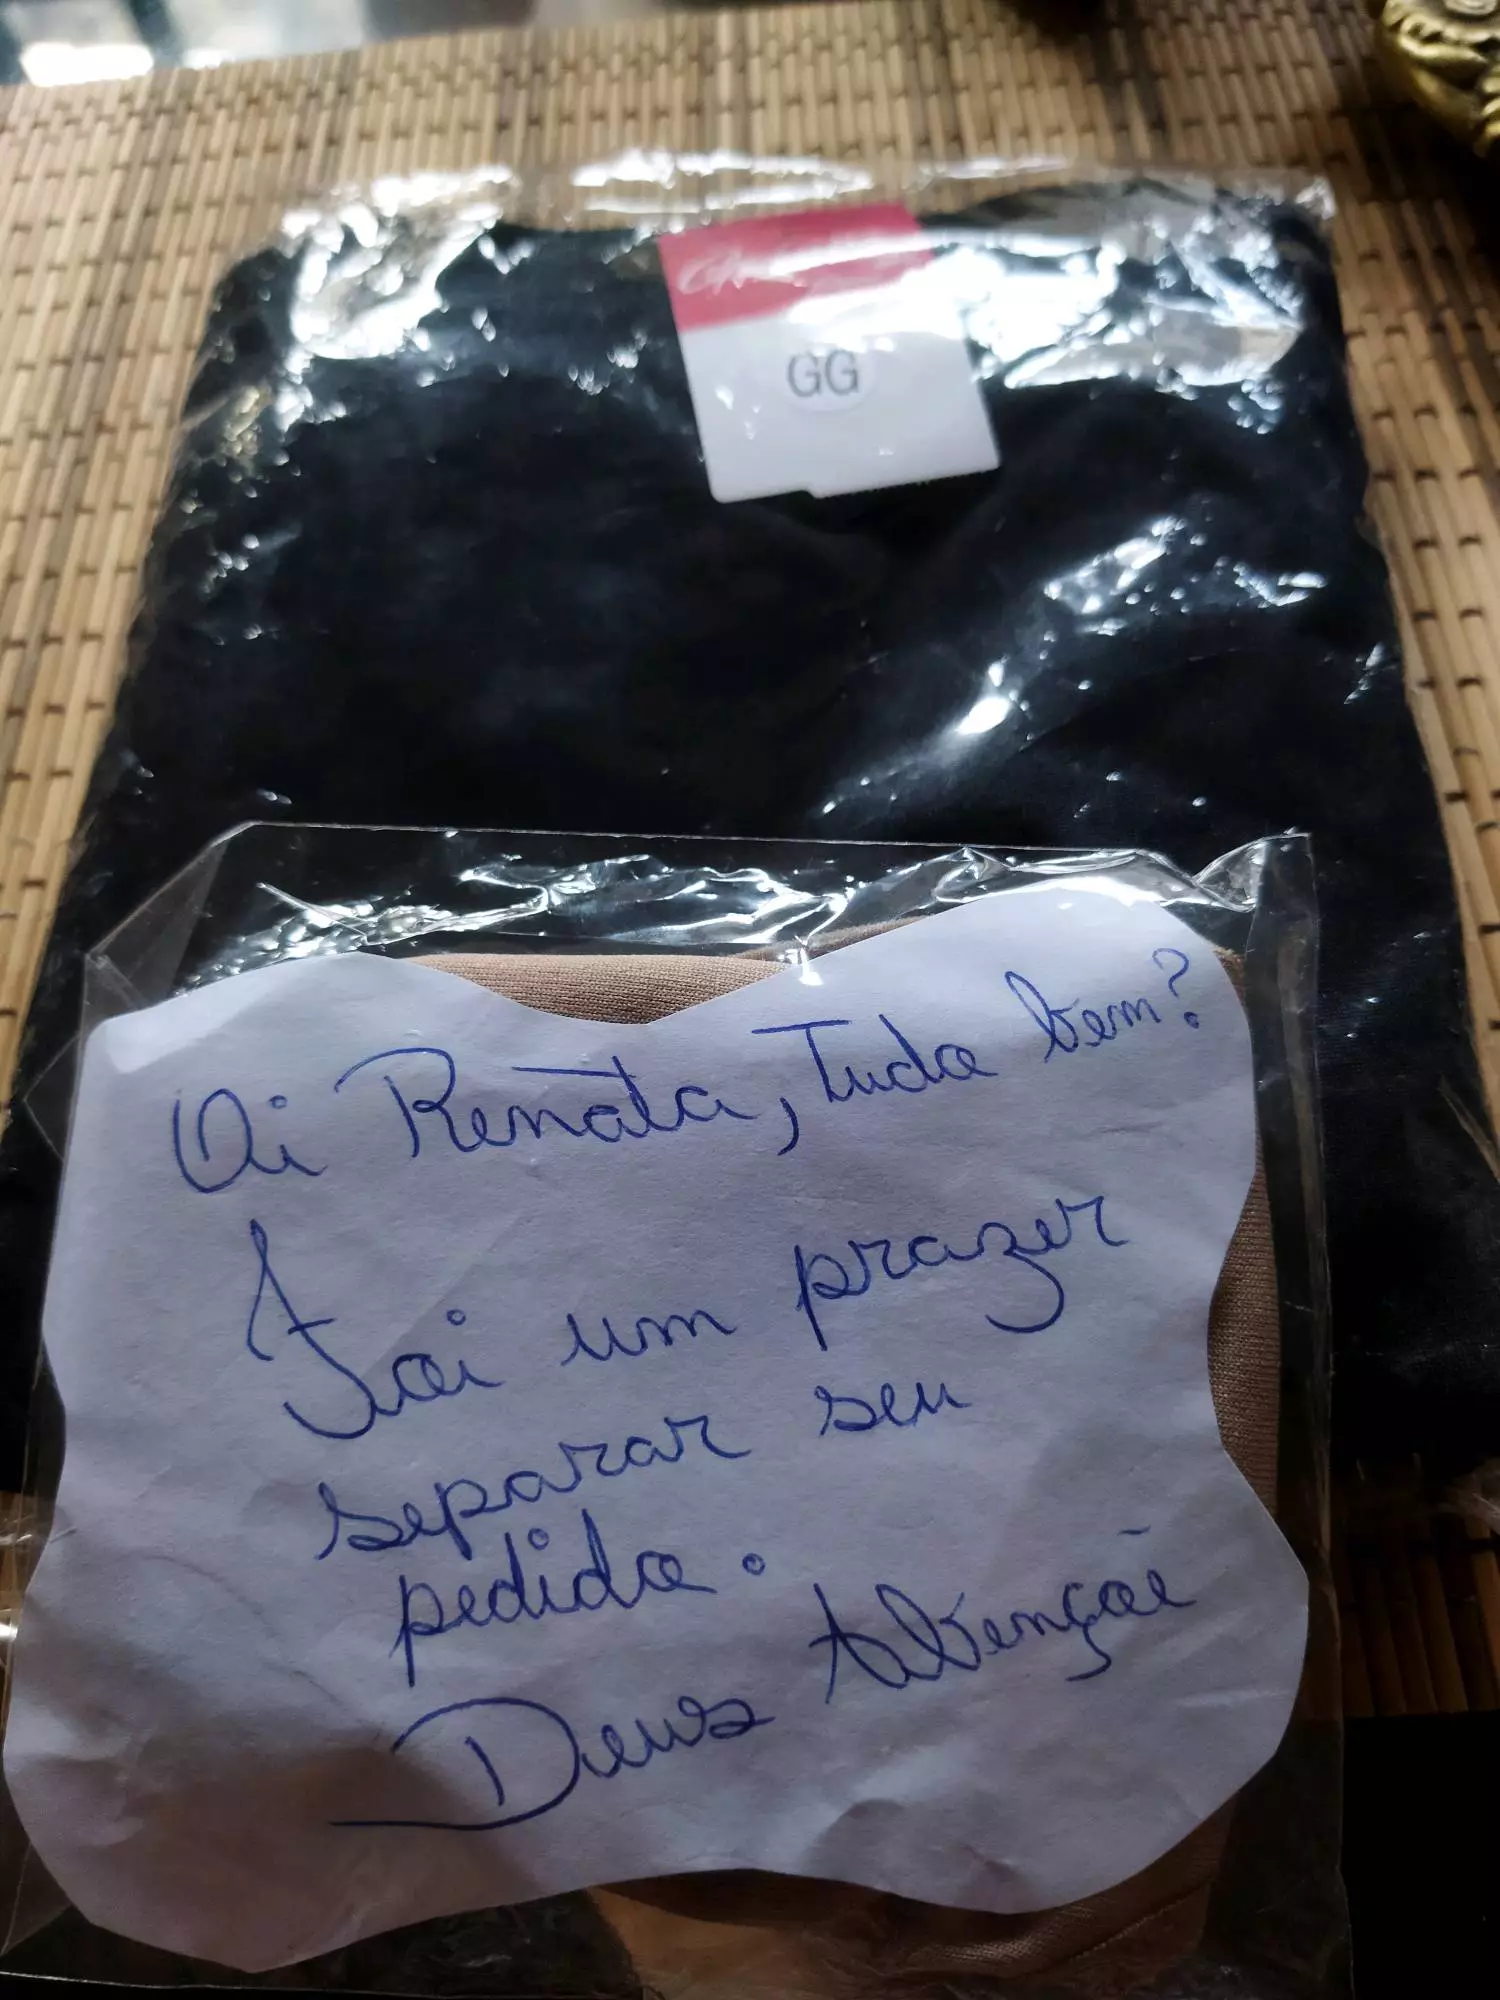 GG
Oi Renata, Tudo bem?
Foi um prazer
separar seu
pedido.
Deus Abençõe